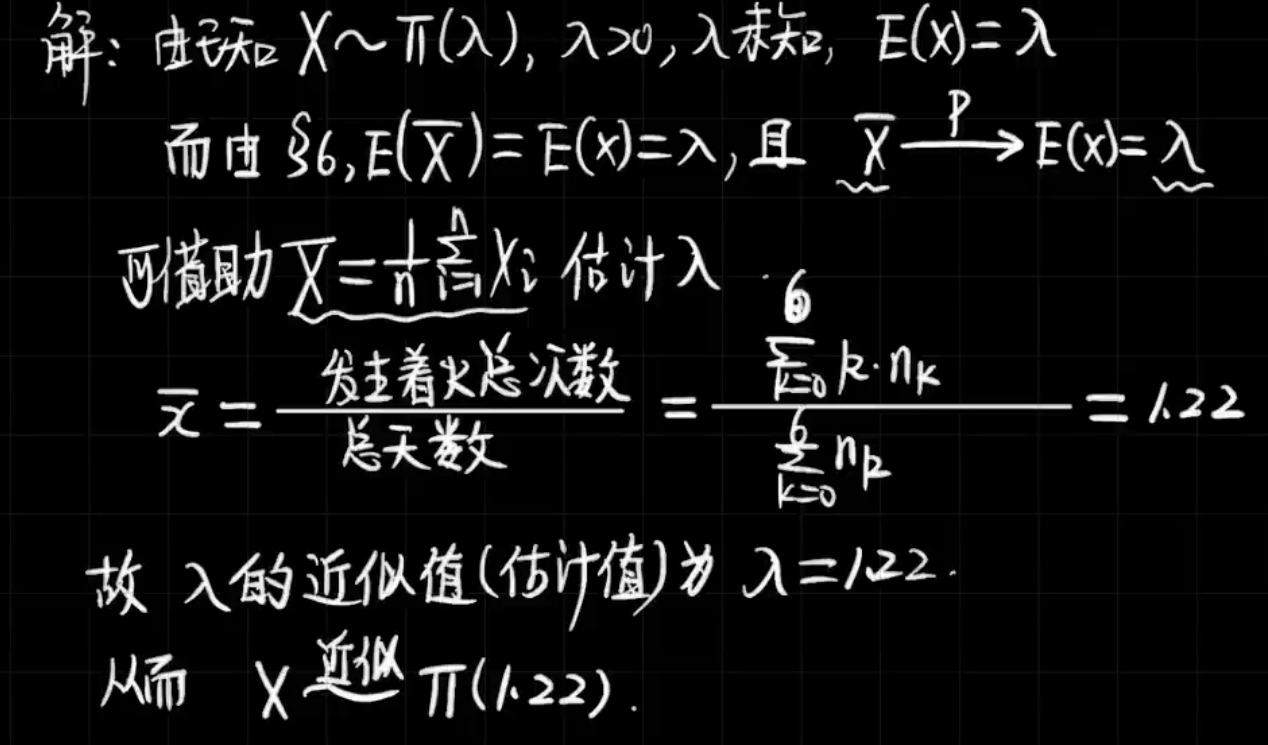 解：由已知 X～π(λ), λ>0, λ未知, E(X)=λ
而由 §6, E(X̅)=E(X)=λ, 且 X̅ —P→ E(X)=λ
可借助 X̅=1/n ∑_{i=1}^{n} Xi 估计 λ
x̅ = 发生着火总次数/总天数 = ∑_{k=0}^{6} k·n_k / ∑_{k=0}^{6} n_k = 1.22
故 λ的近似值(估计值)为 λ=1.22.
从而 X 近似～ π(1.22).